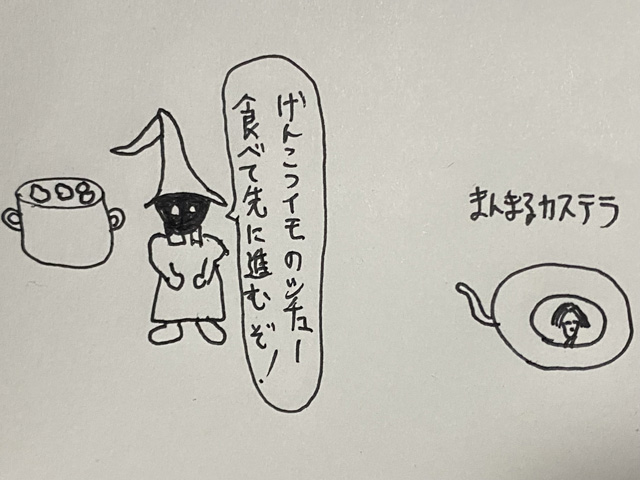 げんこつイモのシチュー
食べて先に進むぞ!
まんまるカステラ